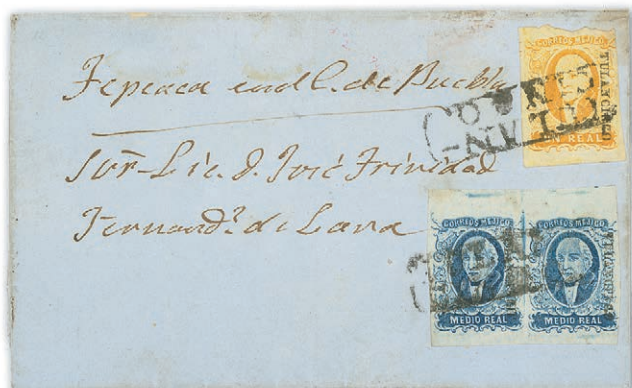 Tepeaca en el E. de Puebla
Sor. Lic. D. José Trinidad
Fernandz. de Lara
CORREOS MEJICO
TULANCINGO
UN REAL
CORREOS MEJICO
MEDIO REAL
CORREOS MEJICO
MEDIO REAL